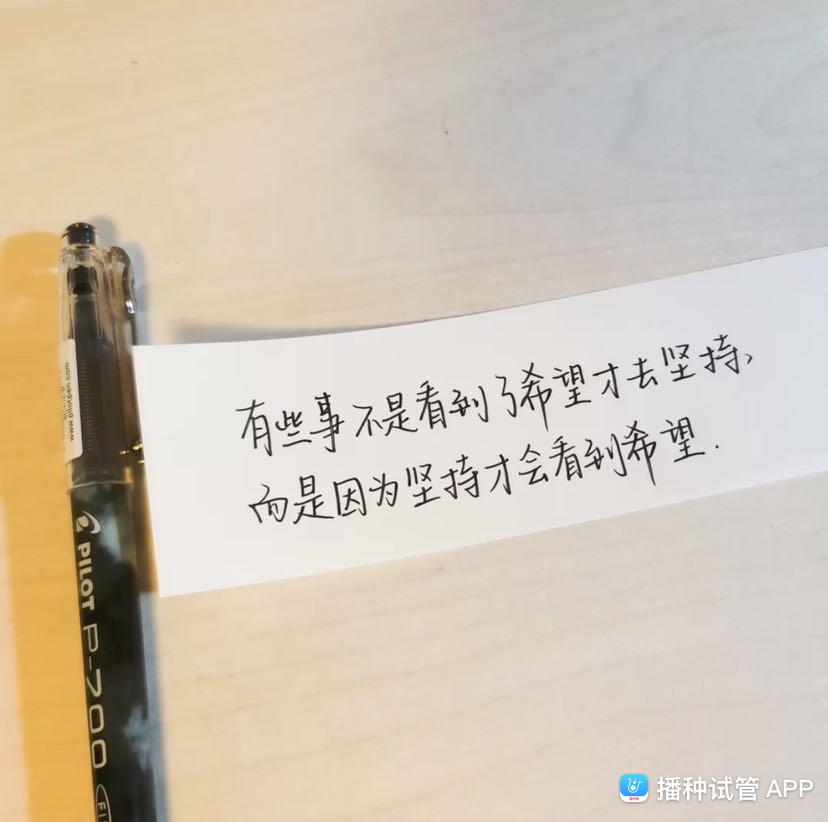 有些事不是看到了希望才去坚持、
而是因为坚持才会看到希望.
www.pilotpen.com
PILOT
P-700
FI
播种试管 APP